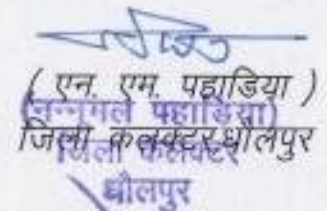 ( एन. एम. पहाडिया )
(नन्नूमल पहाडिया)
जिला कलक्टर धौलपुर
जिला कलेक्टर
धौलपुर